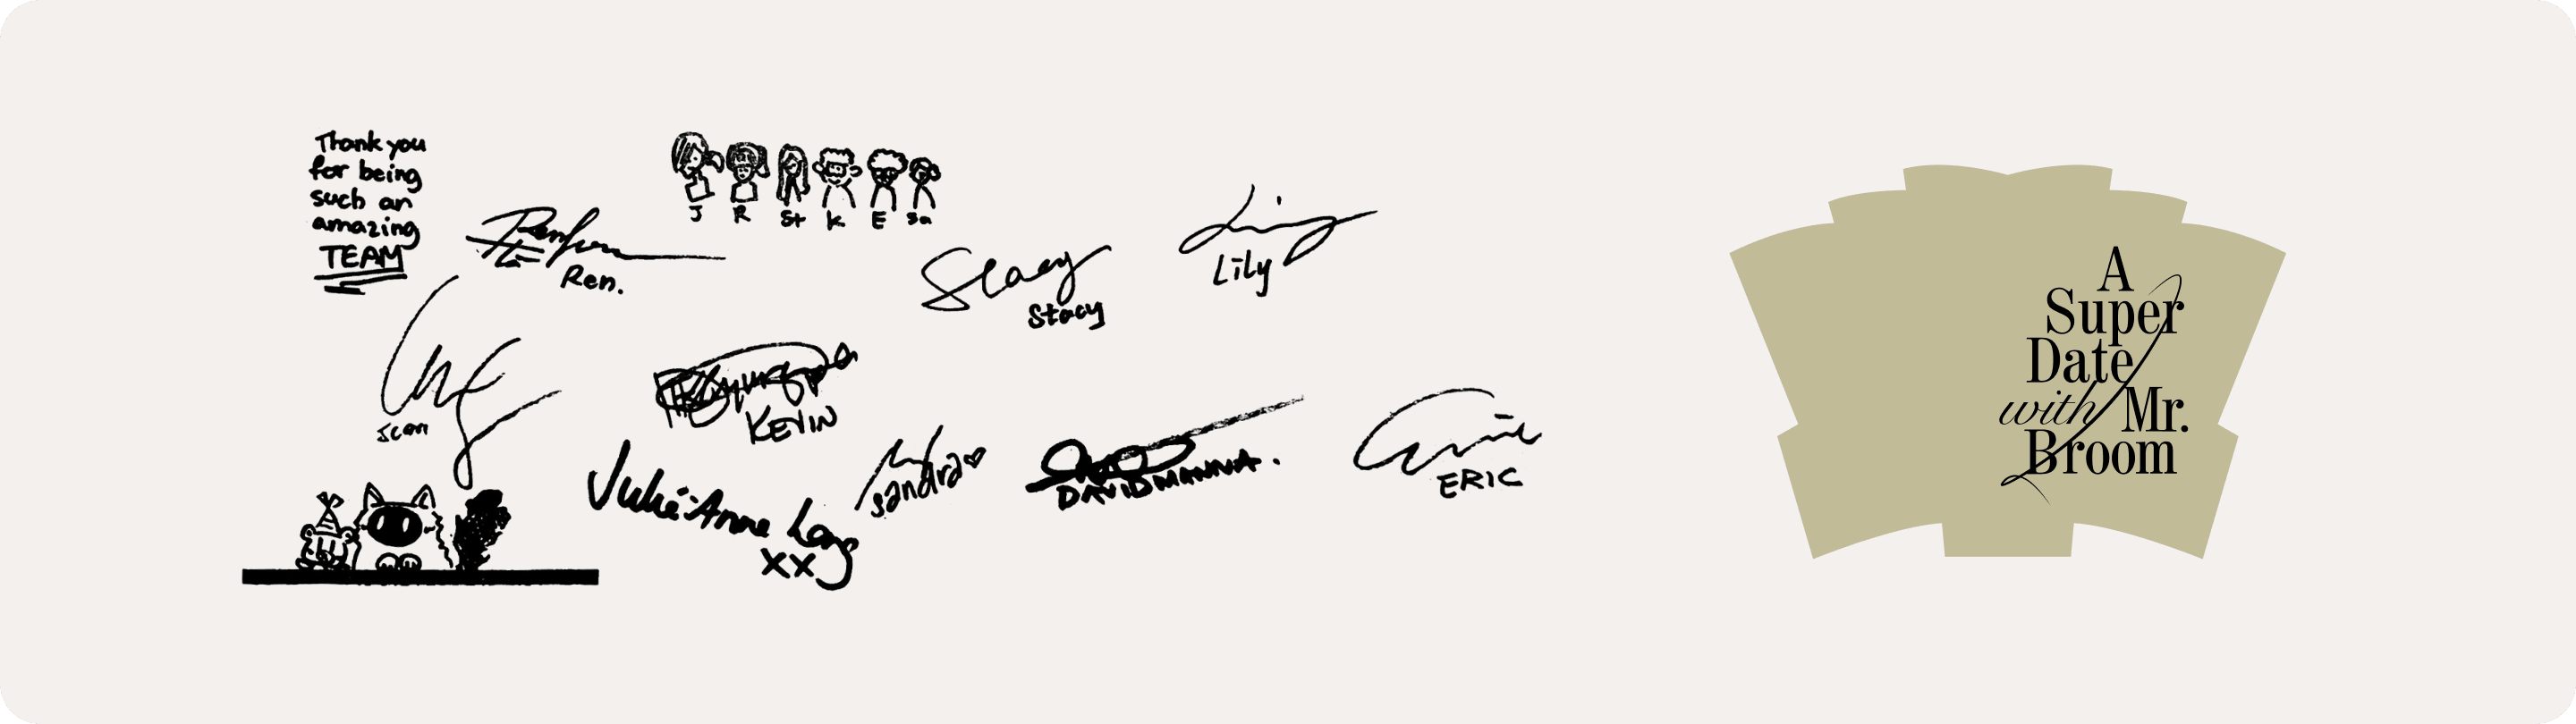 Thank you
for being
such an
amazing
TEAM
J R St K E Sa
Ren.
Stacy
Stacy
Lily
KEVIN
Julie-Anne Long
xx
Sandra
DAVID MANNA.
ERIC
A
Super
Date
with Mr.
Broom